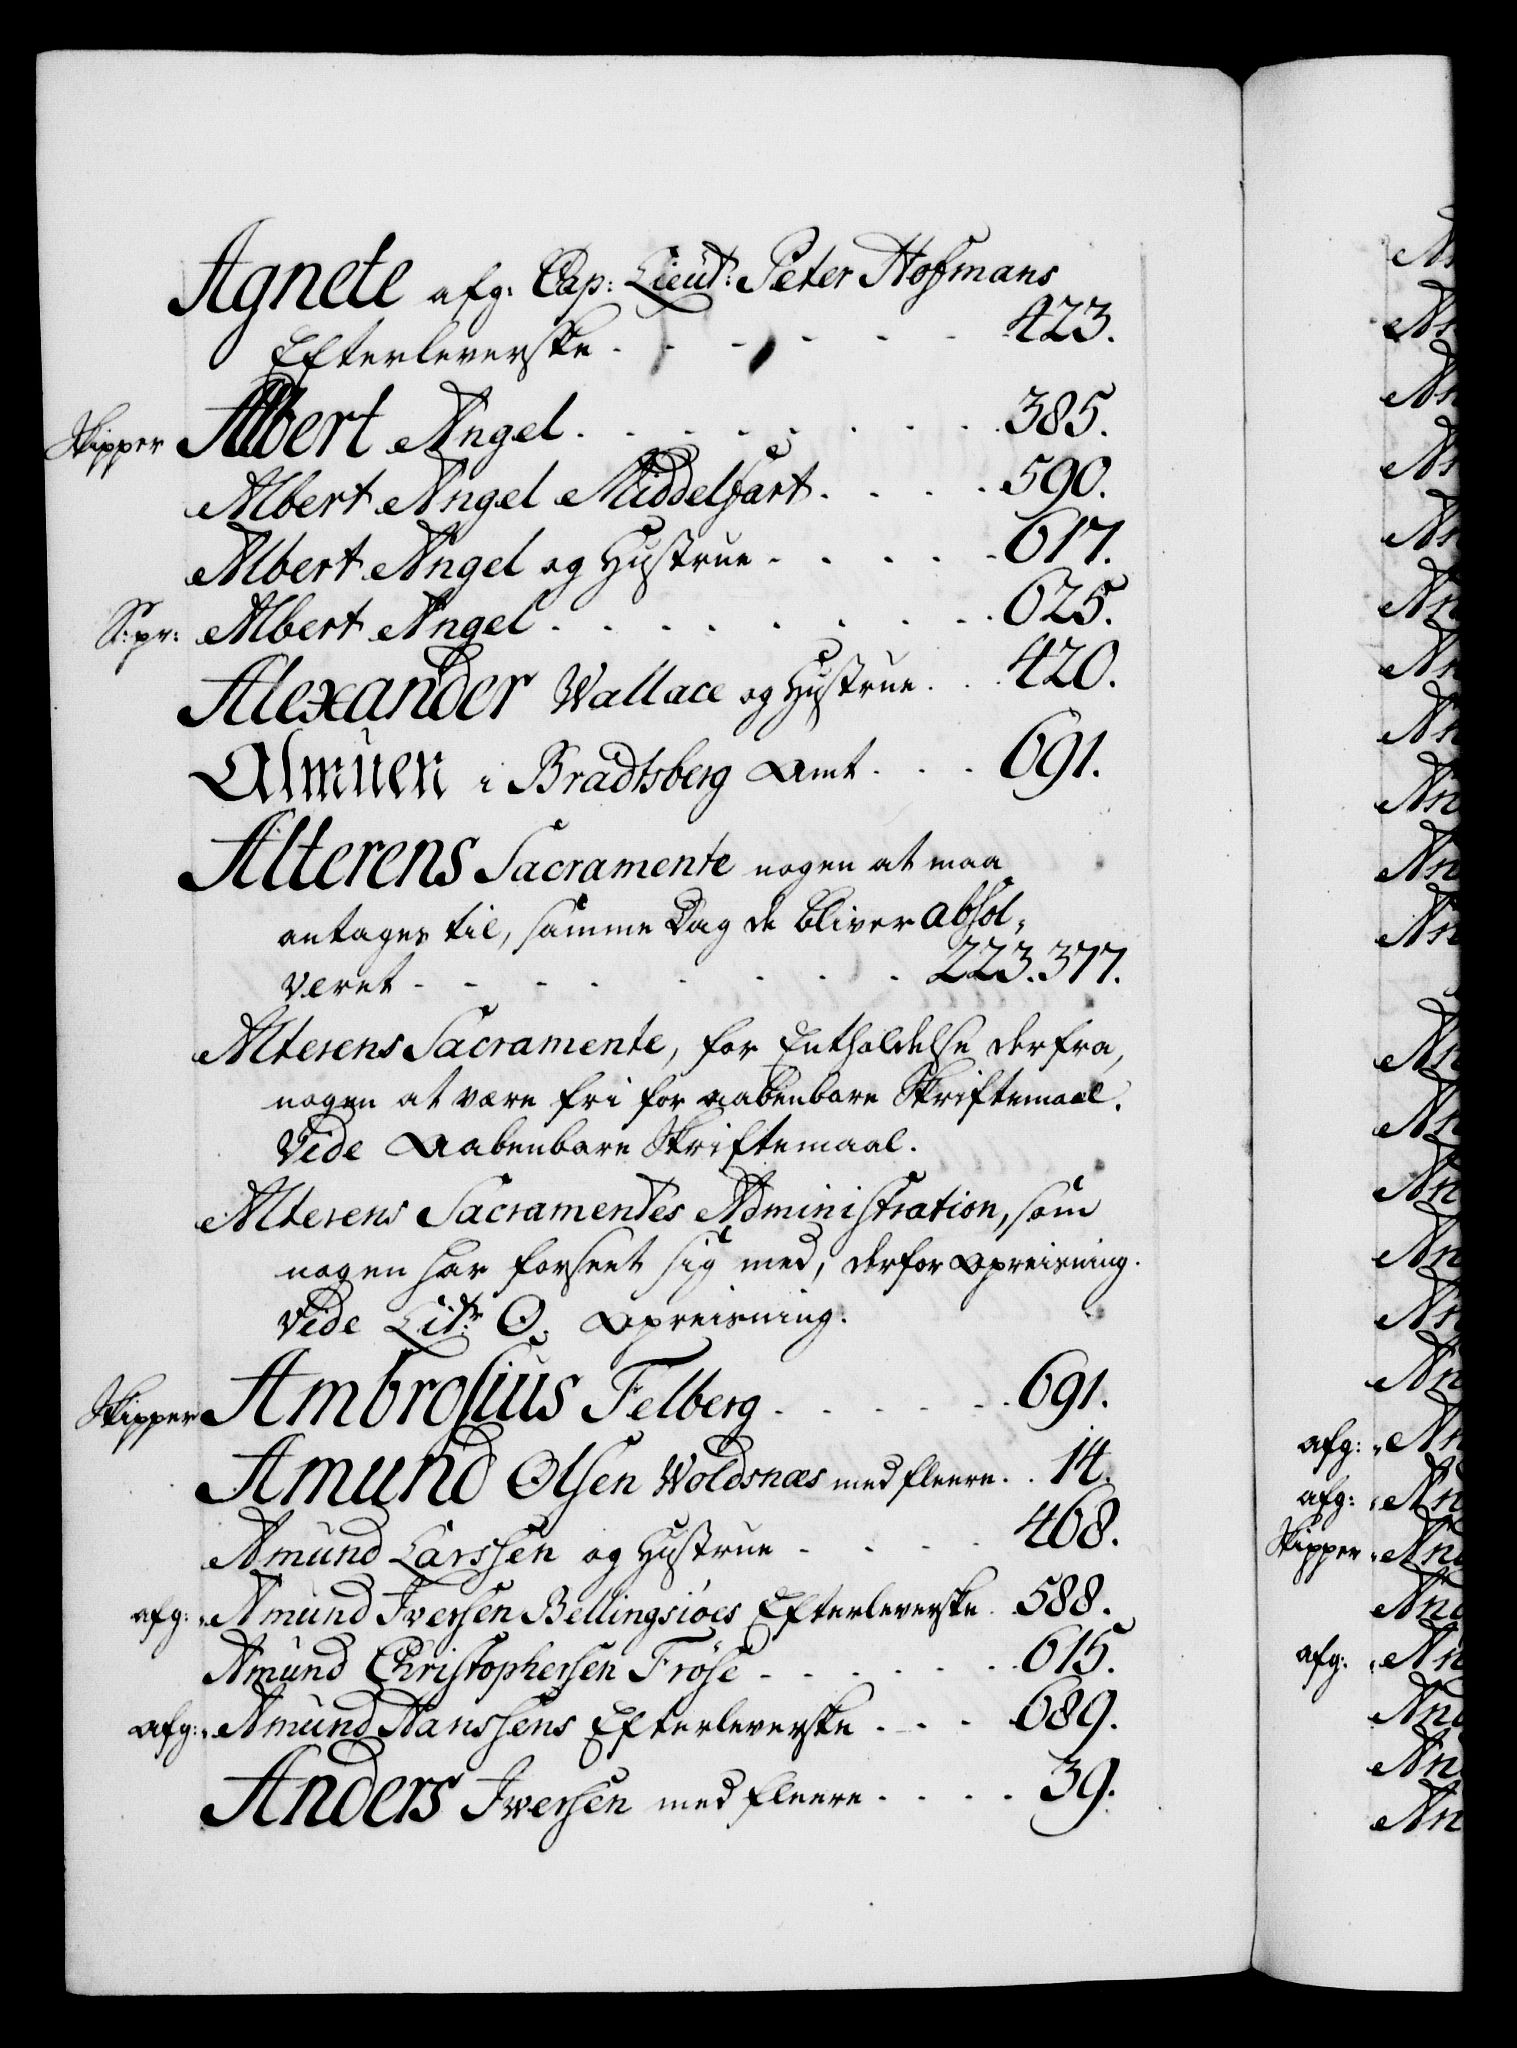 Agnete afg: Cap: Lieut: Peter Hoffmans
Efterleverske . . . . . . 423.
Skipper Albert Angel . . . . . . . . 385.
Albert Angel Middelfart . . . . 590.
Albert Angel og Hustrue . . . . . 617.
S: pr: Albert Angel . . . . . . . . . 625.
Alexander Wallace og Hustrue . . . 420.
Almuen i Bradtsberg Amt . . . 691.
Alterens Sacramente nogen at maa
antages til, samme Dag de bliver absol-
veret . . . . . . . . 223. 377.
Alterens Sacramente, for Entholdelse derfra,
nogen at være fri for aabenbare Skriftemaal.
Vide Aabenbare Skriftemaal.
Alterens Sacramentes Administration, som
nogen har forseet sig med, derfor Opreisning.
Vide Litr O. Opreisning.
Skipper Ambrosius Felberg . . . . . . 691.
Amund Olsen Woldsnæs med fleere . . 14.
Amund Larssen og Hustrue . . . . 468.
afg: Amund Iversen Bellingsiøes Efterleverske . 588.
Amund Christophersen Fröse . . . . . . 615.
afg: Amund Hanssens Efterleverske . . . 689.
Anders Iversen med fleere . . . . 39.
afg: An
afg: An
Skipper And
And
afg: An
And
An
An